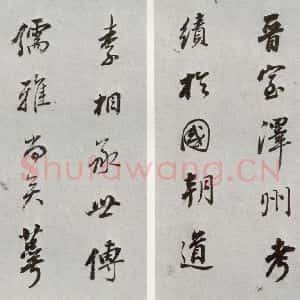 晉室澤州考
績於國朝道
素相承世傳
儒雅尚矣
Shufawang.CN